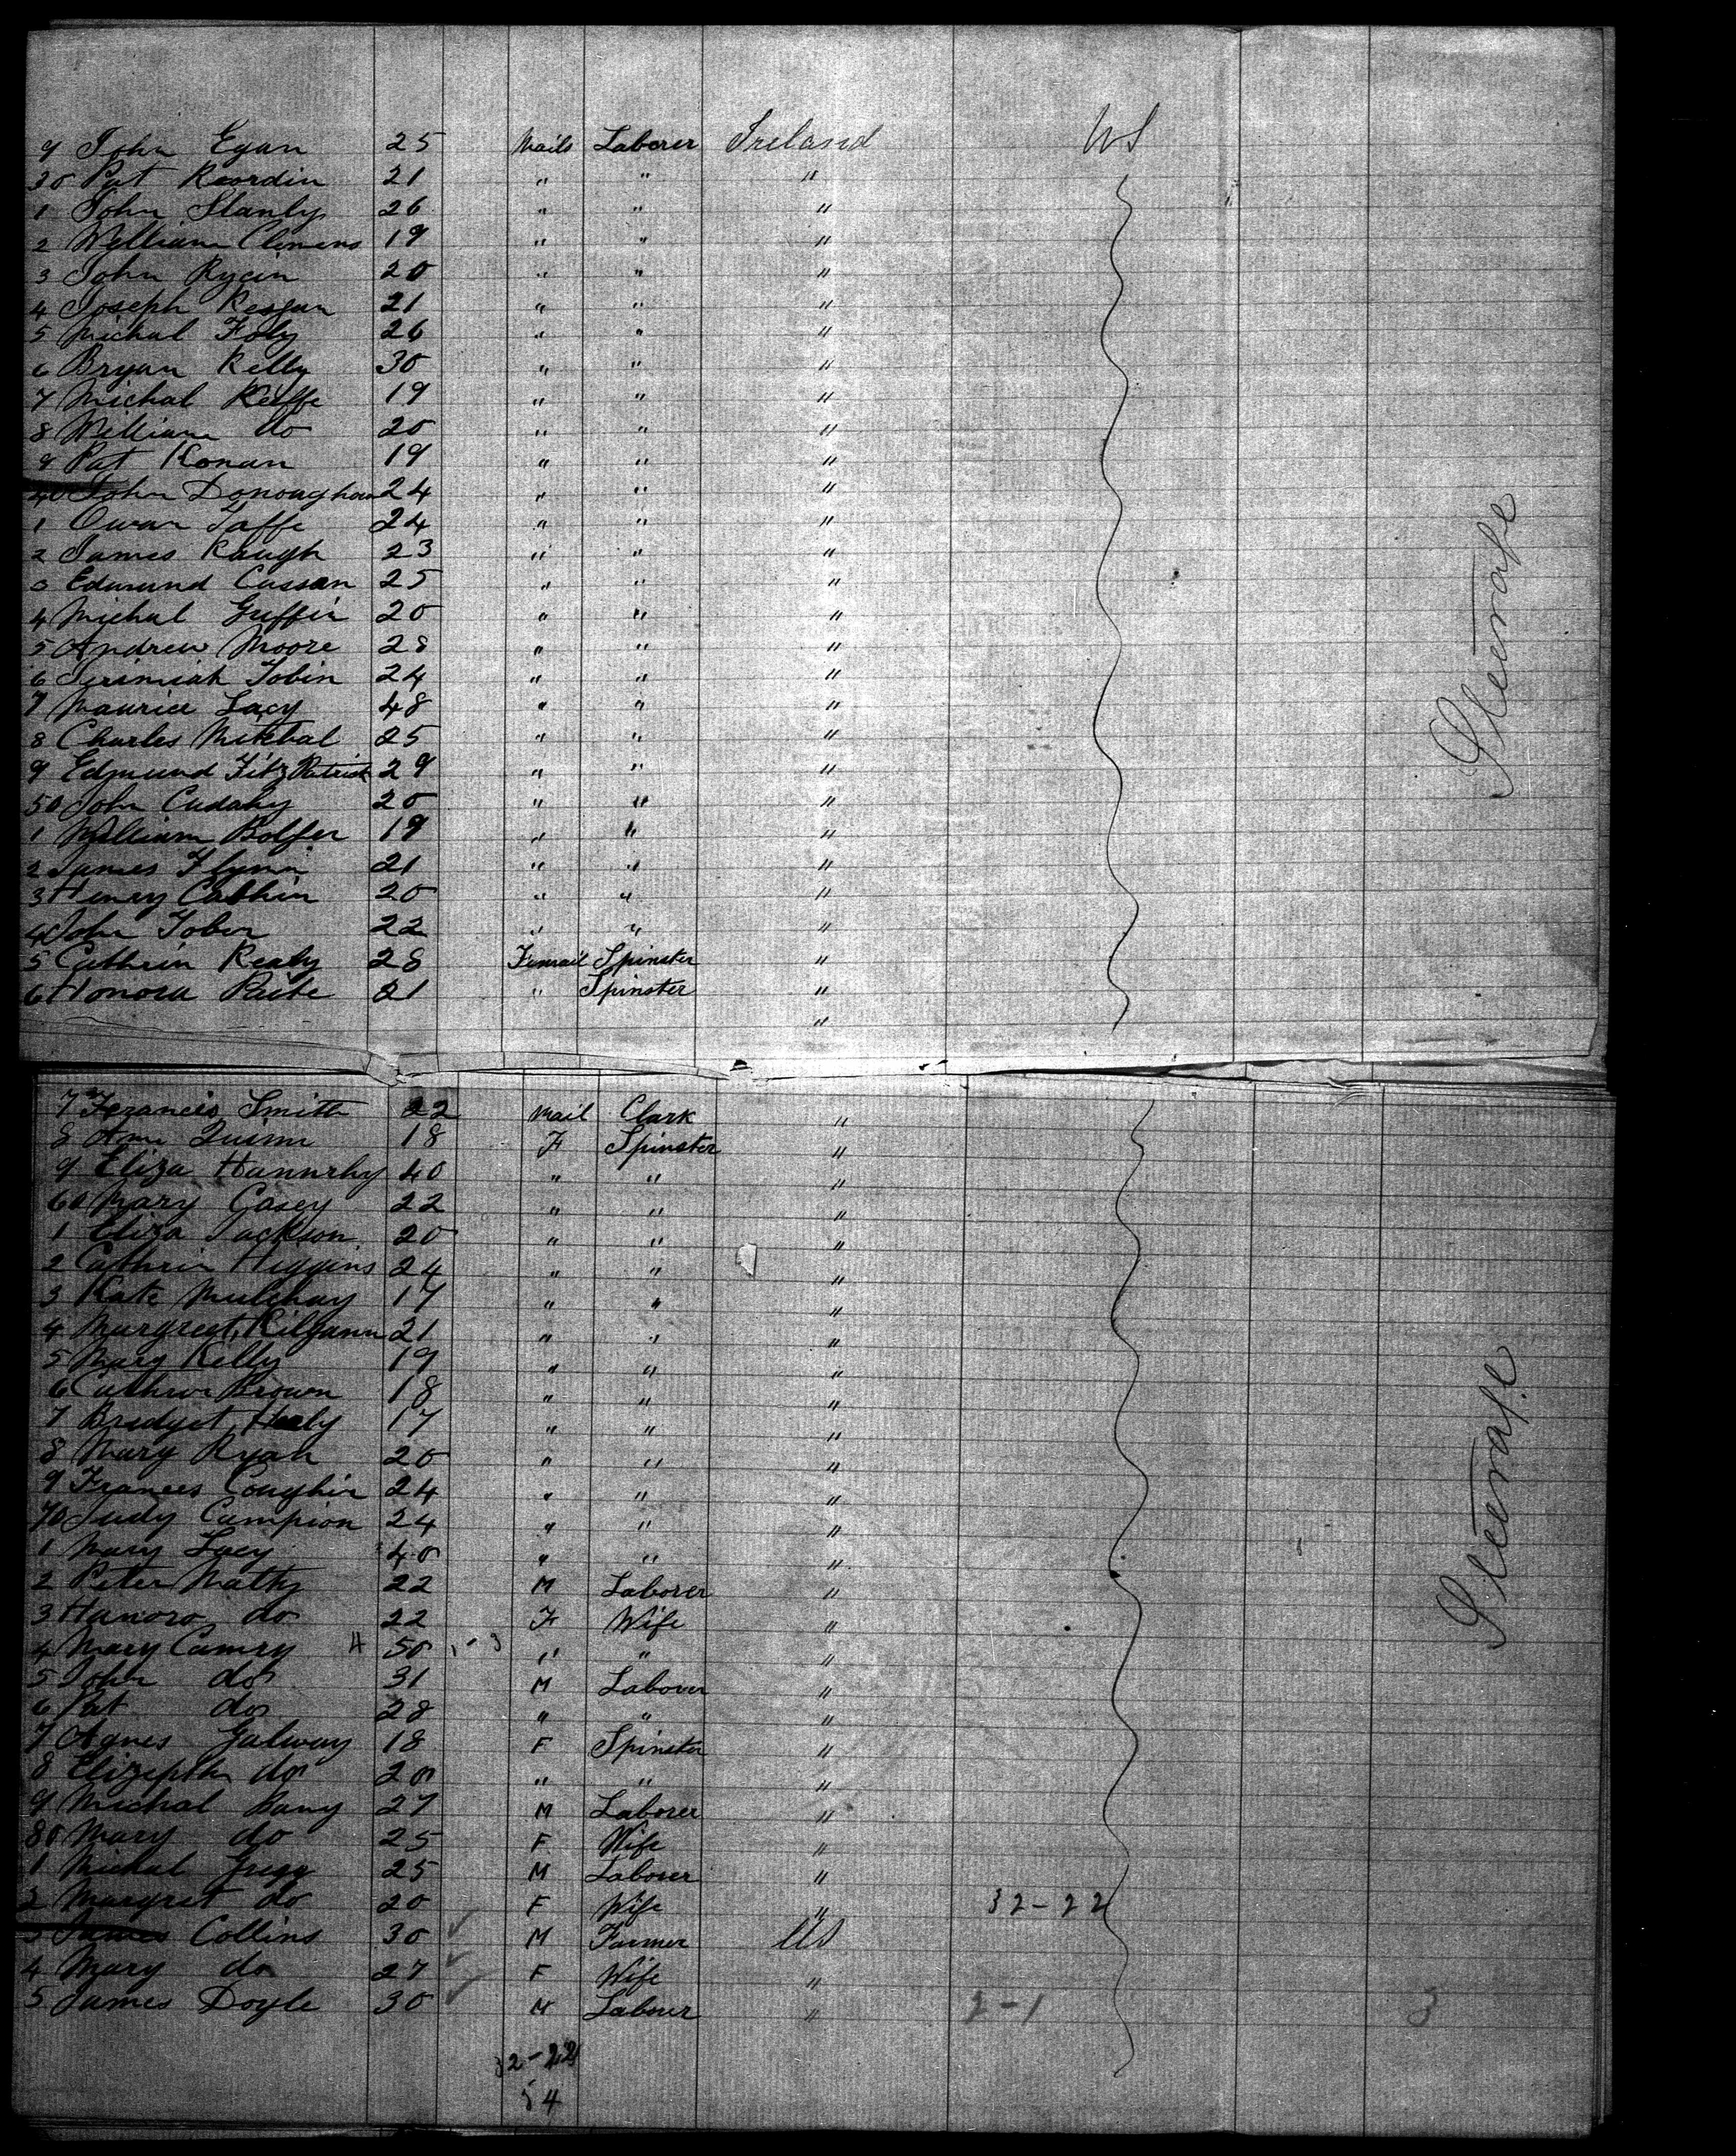 9 John Egan 25 Mails Laborer Ireland US
30 Pat Reordin 21 " " "
1 John Stanly 26 " " "
2 William Clemens 19 " " "
3 John Rycin 20 " " "
4 Joseph 21 " " "
5 Michal Foly 26 " " "
6 Bryan Kelly 30 " " "
7 Michal Keiffe 19 " " "
8 William do 20 " " "
9 Pat Konan 19 " " "
40 John Donoughou 24 " " "
1 Owan Taffe 24 " " "
2 James Kaugh 23 " " "
3 Edmund Cussan 25 " " "
4 Michal Griffin 20 " " "
5 Andrew Moore 28 " " "
6 Jerimiah Tobin 24 " " "
7 Maurice Lacy 48 " " "
8 Charles 25 " " "
9 Edmund Fitz Patrick 29 " " "
50 John Cudahy 20 " " "
1 William Bolger 19 " " "
2 James Flynn 21 " " "
3 Henry Cashin 20 " " "
4 John Tobin 22 " " "
5 Cathrin Realy 28 Femail Spinster "
6 Honora 21 " Spinster "
"
Steerage
7 Francis Smith 22 Mail Clark "
8 Ann Quinn 18 F Spinster "
9 Eliza 40 " " "
60 Mary Casey 22 " " "
1 Eliza Jackson 20 " " "
2 Cathrin Higgins 24 " " "
3 Kate Mulchay 17 " " "
4 Margreet Kilgann 21 " " "
5 Mary Kelly 19 " " "
6 Cathrin Brown 18 " " "
7 Bredget Healy 17 " " "
8 Mary Ryan 20 " " "
9 Frances Coughin 24 " " "
70 Judy Campion 24 " " "
1 Mary Lacy 40 " " "
2 Peter Nathy 22 M Laborer "
3 Hanoro do 22 F Wife "
4 Mary Camry 50 " " "
5 John do 31 M Laborer "
6 Pat do 28 " " "
7 Agnes Galway 18 F Spinster "
8 Elizepth do 20 " " "
9 Michal 27 M Laborer "
80 Mary do 25 F Wife "
1 Michal Gregg 25 M Laborer "
2 Margret do 20 F Wife " 32-22
3 James Collins 30 M Farmer US
4 Mary do 27 F Wife "
5 James Doyle 30 M Laborer " 2-1 3
Steerage
32-22
54